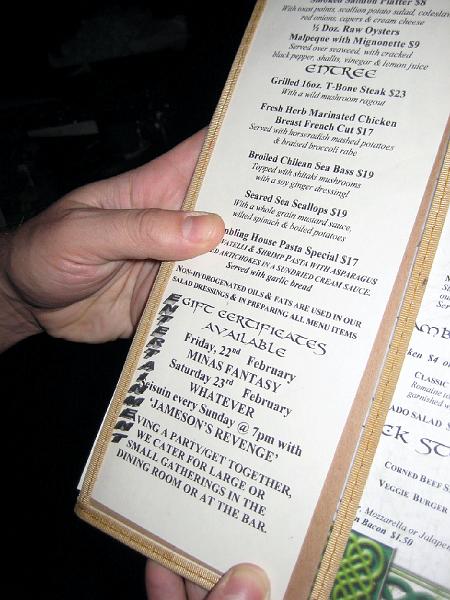 Smoked Salmon Platter $8
With toast points, scallion potato salad,
red onions, capers & cream cheese
½ Doz. Raw Oysters
Malpeque with Mignonette $9
Served over seaweed, with cracked
black pepper, shallts, vinegar & lemon juice
ENTREE
Grilled 16oz. T-Bone Steak $23
With a wild mushroom ragout
Fresh Herb Marinated Chicken
Breast French Cut $17
Served with horseradish mashed potatoes
& braised broccoli rabe
Broiled Chilean Sea Bass $19
Topped with shitaki mushrooms
with a soy ginger dressing!
Seared Sea Scallops $19
With a whole grain mustard sauce,
wilted spinach & boiled potatoes
mbling House Pasta Special $17
VATELLI & SHRIMP PASTA WITH ASPARAGUS
ED ARTICHOKES IN A SUNDRIED CREAM SAUCE,
Served with garlic bread
NON-HYDROGENATED OILS & FATS ARE USED IN OUR
SALAD DRESSINGS & IN PREPARING ALL MENU ITEMS
ENTERTAINMENT
GIFT CERTIFICATES
AVAILABLE
Friday, 22nd February
MINAS FANTASY
Saturday 23rd February
WHATEVER
Seisuin every Sunday @ 7pm with
'JAMESON'S REVENGE'
VING A PARTY/GET TOGETHER,
WE CATER FOR LARGE OR
SMALL GATHERINGS IN THE
DINING ROOM OR AT THE BAR.
MB
ken $4 o
CLASSIC
Romaine
garnished
ADO SALAD
EK ST
CORNED BEEF S
VEGGIE BURGER
Mozzarella or Jalape
n Bacon $1.50